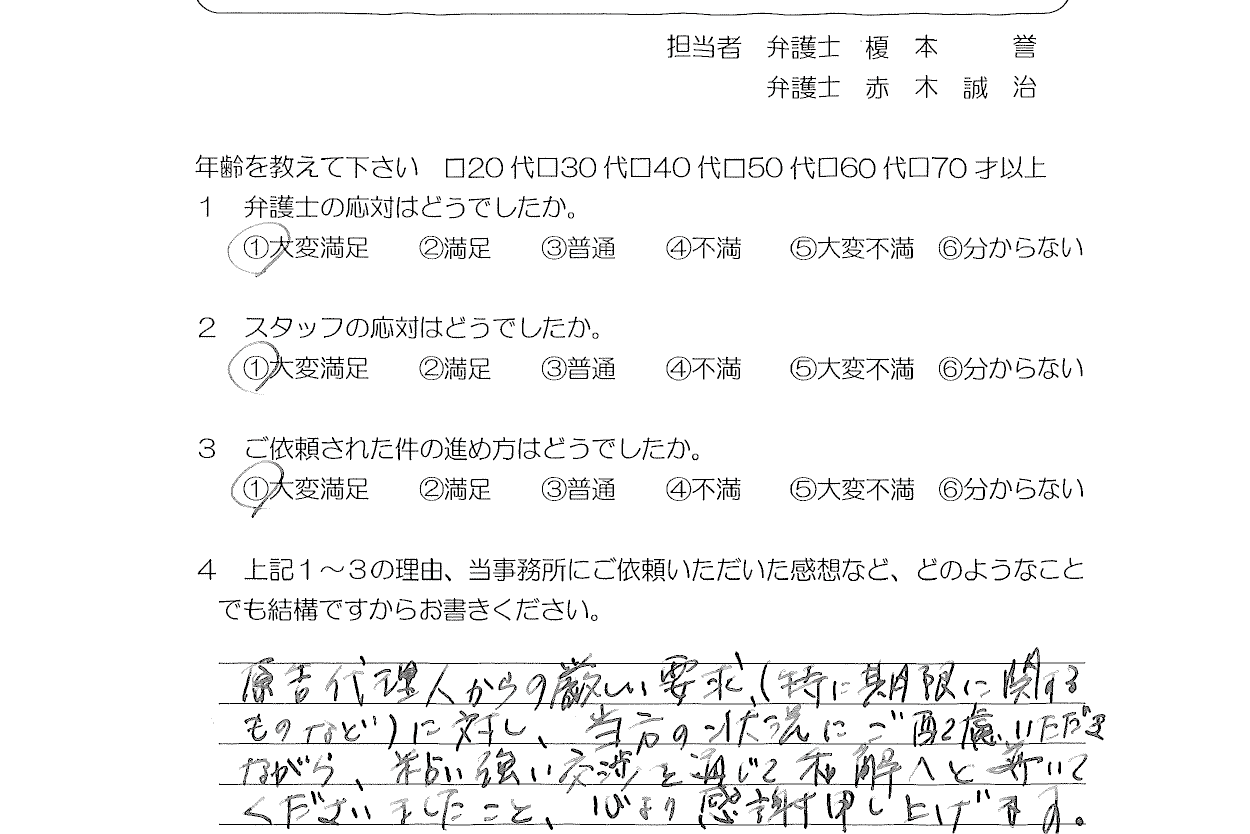 担当者　弁護士　榎　本　　　誉
弁護士　赤　木　誠　治
年齢を教えて下さい　□20 代□30 代□40 代□50 代□60 代□70 才以上
１　弁護士の応対はどうでしたか。
①大変満足　　②満足　　③普通　　④不満　　⑤大変不満　⑥分からない
２　スタッフの応対はどうでしたか。
①大変満足　　②満足　　③普通　　④不満　　⑤大変不満　⑥分からない
３　ご依頼された件の進め方はどうでしたか。
①大変満足　　②満足　　③普通　　④不満　　⑤大変不満　⑥分からない
４　上記１～３の理由、当事務所にご依頼いただいた感想など、どのようなこと
でも結構ですからお書きください。
原告代理人からの厳しい要求、(特に期限に関する
ものなど)に対し、当方の状況にご配慮いただき
ながら、粘り強い交渉を通じて和解へと導いて
くださいましたこと、心より感謝申し上げます。